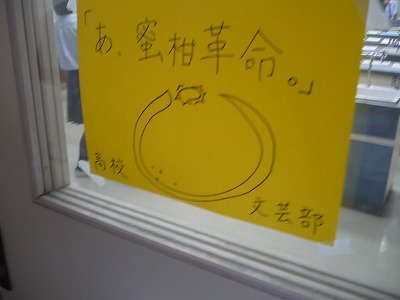 「あ、蜜柑革命。」
高校
文芸部